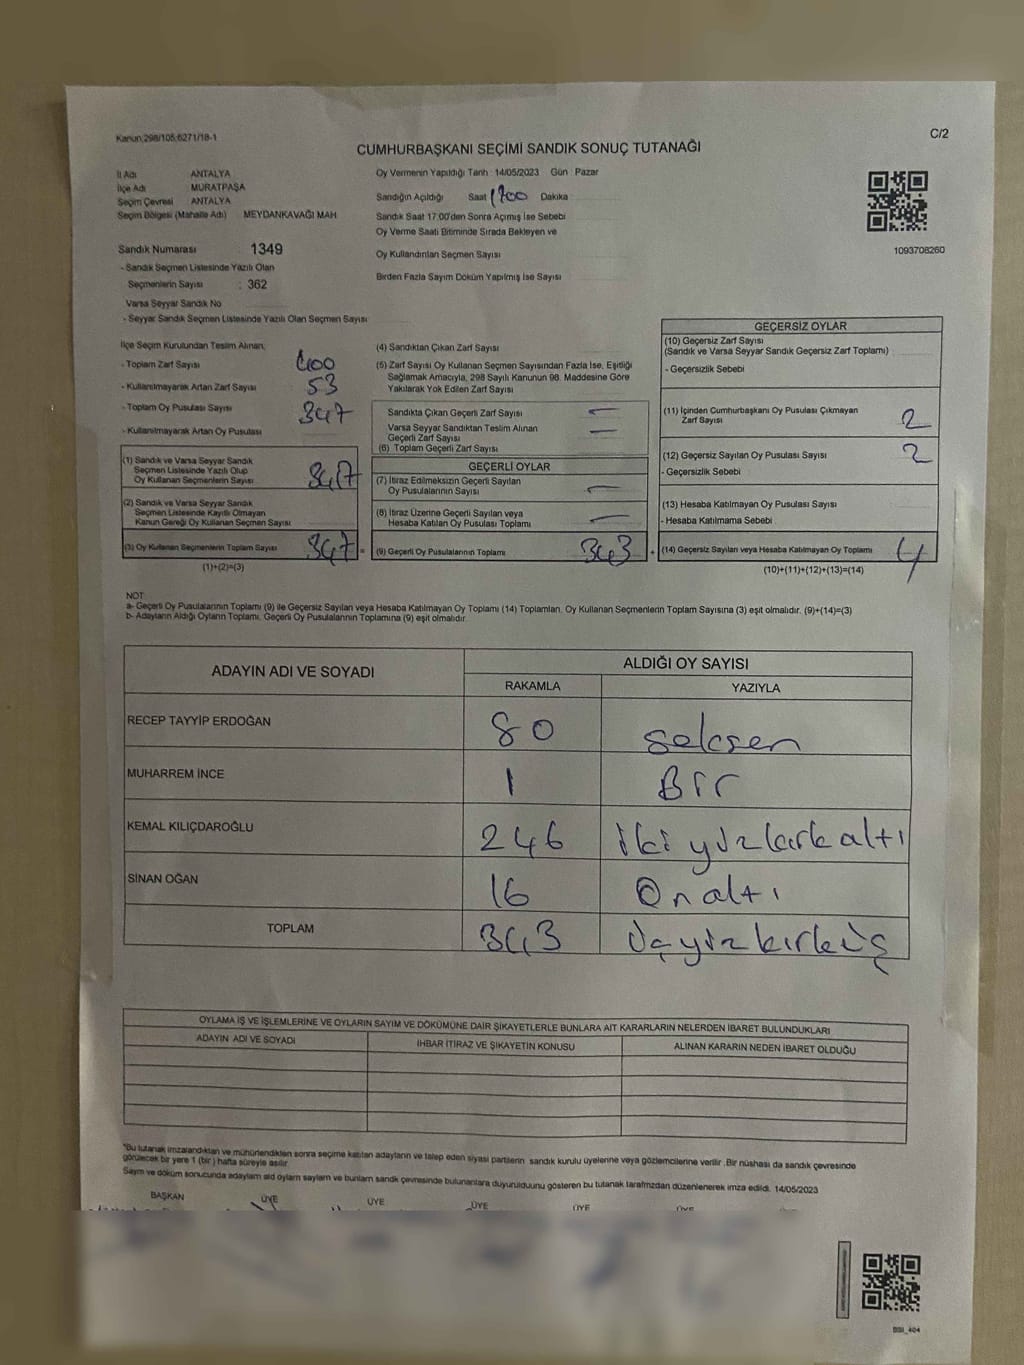 Kanun:298/105;6271/18-1
C/2
CUMHURBAŞKANI SEÇİMİ SANDIK SONUÇ TUTANAĞI
İl Adı ANTALYA
İlçe Adı MURATPAŞA
Seçim Çevresi ANTALYA
Seçim Bölgesi (Mahalle Adı) MEYDANKAVAĞI MAH
Oy Vermenin Yapıldığı Tarih : 14/05/2023 Gün : Pazar
Sandığın Açıldığı Saat 1700 Dakika
Sandık Saat 17:00'den Sonra Açmış İse Sebebi
Oy Verme Saati Bitiminde Sırada Bekleyen ve
Oy Kullandırılan Seçmen Sayısı
Birden Fazla Sayım Döküm Yapılmış İse Sayısı
1093708260
Sandık Numarası : 1349
- Sandık Seçmen Listesinde Yazılı Olan
Seçmenlerin Sayısı : 362
Varsa Seyyar Sandık No
- Seyyar Sandık Seçmen Listesinde Yazılı Olan Seçmen Sayısı
İlçe Seçim Kurulundan Teslim Alınan;
- Toplam Zarf Sayısı 400
- Kullanılmayarak Artan Zarf Sayısı 53
- Toplam Oy Pusulası Sayısı 347
- Kullanılmayarak Artan Oy Pusulası
(1) Sandık ve Varsa Seyyar Sandık
Seçmen Listesinde Yazılı Olup
Oy Kullanan Seçmenlerin Sayısı 347
(2) Sandık ve Varsa Seyyar Sandık
Seçmen Listesinde Kayıtlı Olmayan
Kanun Gereği Oy Kullanan Seçmen Sayısı
(3) Oy Kullanan Seçmenlerin Toplam Sayısı 347 =
(1)+(2)=(3)
(4) Sandıktan Çıkan Zarf Sayısı
(5) Zarf Sayısı Oy Kullanan Seçmen Sayısından Fazla İse, Eşitliği
Sağlamak Amacıyla, 298 Sayılı Kanunun 98. Maddesine Göre
Yakılarak Yok Edilen Zarf Sayısı
Sandıkta Çıkan Geçerli Zarf Sayısı –
Varsa Seyyar Sandıktan Teslim Alınan
Geçerli Zarf Sayısı –
(6) Toplam Geçerli Zarf Sayısı
GEÇERLİ OYLAR
(7) İtiraz Edilmeksizin Geçerli Sayılan
Oy Pusulalarının Sayısı –
(8) İtiraz Üzerine Geçerli Sayılan veya
Hesaba Katılan Oy Pusulası Toplamı –
(9) Geçerli Oy Pusulalarının Toplamı 343 +
GEÇERSİZ OYLAR
(10) Geçersiz Zarf Sayısı
(Sandık ve Varsa Seyyar Sandık Geçersiz Zarf Toplamı)
- Geçersizlik Sebebi
(11) İçinden Cumhurbaşkanı Oy Pusulası Çıkmayan
Zarf Sayısı 2
(12) Geçersiz Sayılan Oy Pusulası Sayısı 2
- Geçersizlik Sebebi
(13) Hesaba Katılmayan Oy Pusulası Sayısı
- Hesaba Katılmama Sebebi
(14) Geçersiz Sayılan veya Hesaba Katılmayan Oy Toplamı 4
(10)+(11)+(12)+(13)=(14)
NOT
a- Geçerli Oy Pusulalarının Toplamı (9) ile Geçersiz Sayılan veya Hesaba Katılmayan Oy Toplamı (14) Toplamları, Oy Kullanan Seçmenlerin Toplam Sayısına (3) eşit olmalıdır. (9)+(14)=(3)
b- Adayların Aldığı Oyların Toplamı, Geçerli Oy Pusulalarının Toplamına (9) eşit olmalıdır.
ADAYIN ADI VE SOYADI ALDIĞI OY SAYISI
RAKAMLA YAZIYLA
RECEP TAYYİP ERDOĞAN 80 seksen
MUHARREM İNCE 1 Bir
KEMAL KILIÇDAROĞLU 246 iki yüz kırk altı
SİNAN OĞAN 16 On altı
TOPLAM 343 üçyüzkırküç
OYLAMA İŞ VE İŞLEMLERİNE VE OYLARIN SAYIM VE DÖKÜMÜNE DAİR ŞİKAYETLERLE BUNLARA AİT KARARLARIN NELERDEN İBARET BULUNDUKLARI
ADAYIN ADI VE SOYADI İHBAR İTİRAZ VE ŞİKAYETİN KONUSU ALINAN KARARIN NEDEN İBARET OLDUĞU
*Bu tutanak imzalandıktan ve mühürlendikten sonra seçime katılan adayların ve talep eden siyasi partilerin sandık kurulu üyelerine veya gözlemcilerine verilir .Bir nüshası da sandık çevresinde
görülecek bir yere 1 (bir ) hafta süreyle asılır.
Sayım ve döküm sonucunda adayların aldı oyların sayların ve bunların sandık çevresinde bulunanlara duyurulduunu gösteren bu tutanak tarafımızdan düzenlenerek imza edildi. 14/05/2023
BAŞKAN ÜYE ÜYE ÜYE ÜYE ÜYE
BSI_404